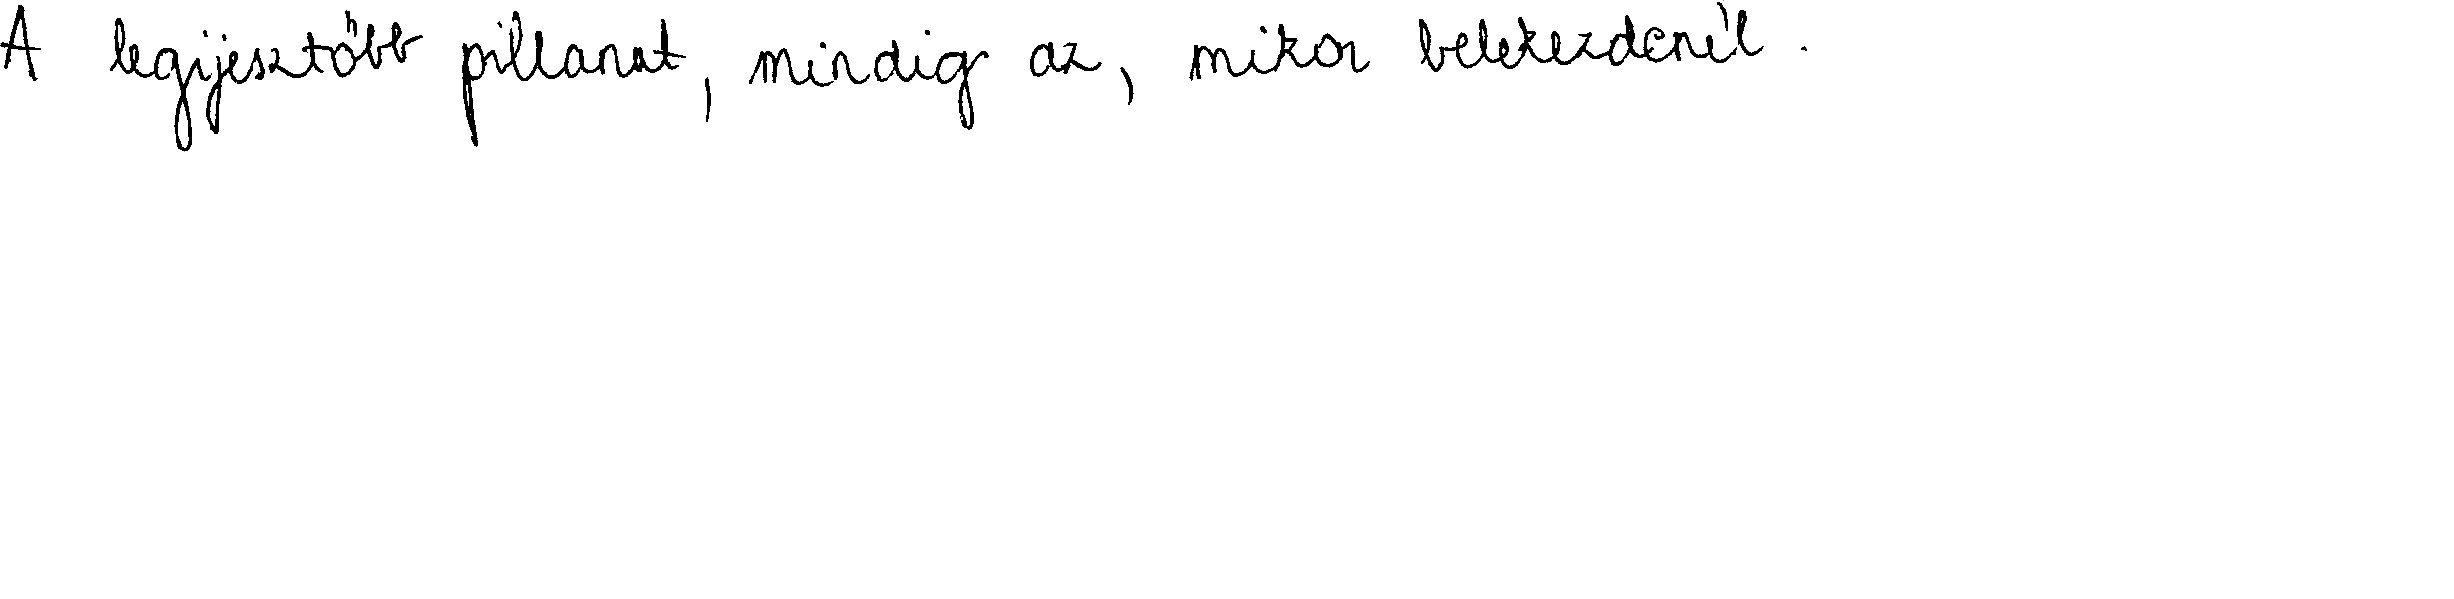 A legijesztőbb pillanat, mindig az, mikor belekezdenél.